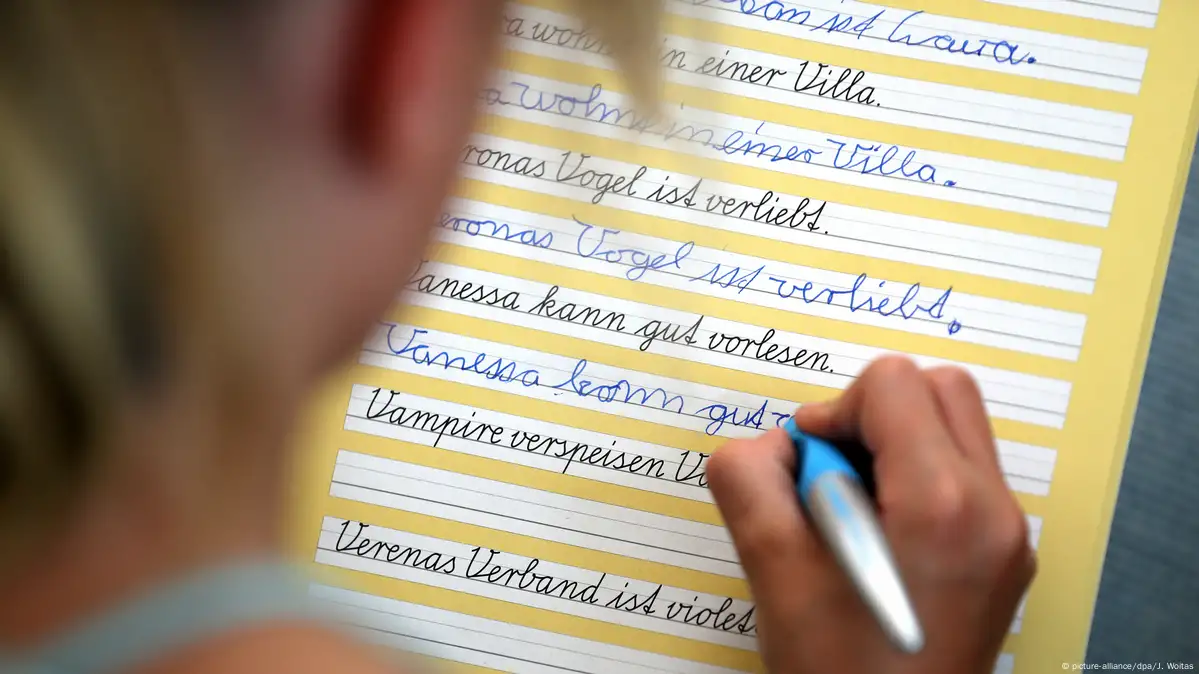 ist
in einer Villa.
wohn in einer Villa.
ronas Vogel ist verliebt.
eronas Vogel ist verliebt.
Vanessa kann gut vorlesen.
Vanessa kann gut
Vampire verspeisen V
Verenas Verband ist violet
© picture-alliance/dpa/J. Woitas